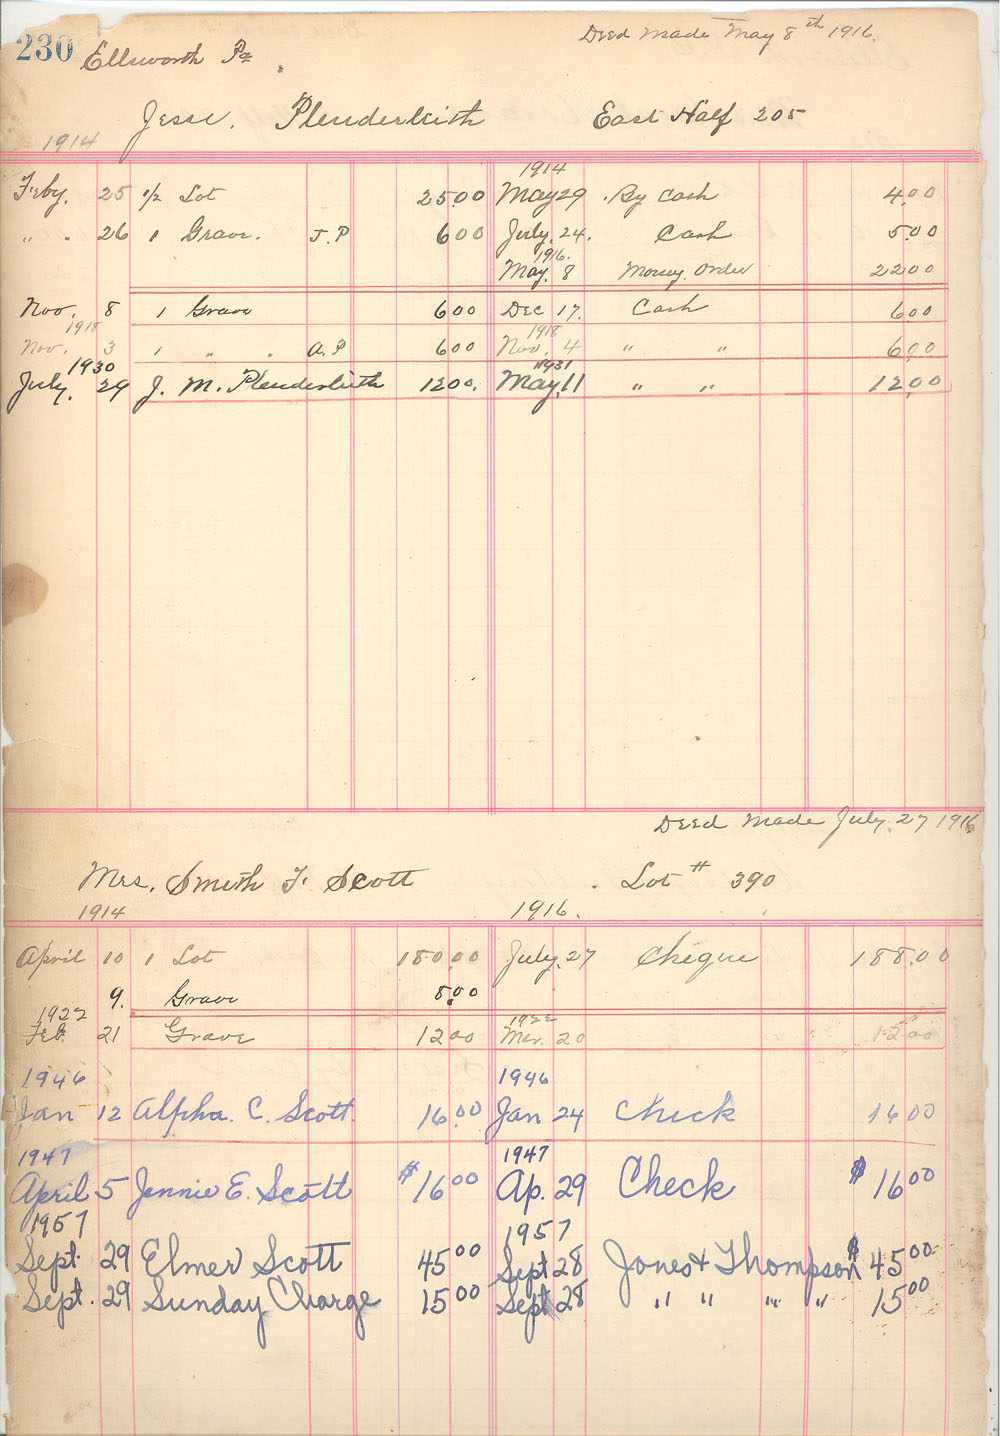 230 Ellsworth Pa Deed Made May 8th 1916.
Jesse. Plenderleith East Half 205
1914
1914
Feby. 25 1/2 Lot 25 00 May 29 By Cash 4 00
" " 26 1 Grave. J.P 6 00 July. 24. Cash 5 00
1916.
May. 8 Money Order 22 00
Nov. 8 1 Grave 6 00 Dec 17. Cash 6 00
1918 1918
Nov. 3 1 " " A.P 6 00 Nov. 4 " " 6 00
1930 1931
July. 29 J. M. Plenderleith 12 00. May. 11 " " 12 00
Deed Made July. 27 1916
Mrs. Smith F. Scott Lot # 390
1914 1916.
April 10 1 Lot 180 00 July. 27 Cheque 188.00
9. Grave 8.00
1922 1922
Feb. 21 Grave 12 00 Mar. 20 12 00
1946 1946
Jan 12 Alpha. C. Scott. 16.00 Jan 24 Check 16 00
1947 1947
April 5 Jennie E. Scott $16 00 Ap. 29 Check $16 00
1957 1957
Sept. 29 Elmer Scott 45 00 Sept 28 Jones & Thompson $45 00
Sept. 29 Sunday Charge 15 00 Sept 28 " " " " 15 00